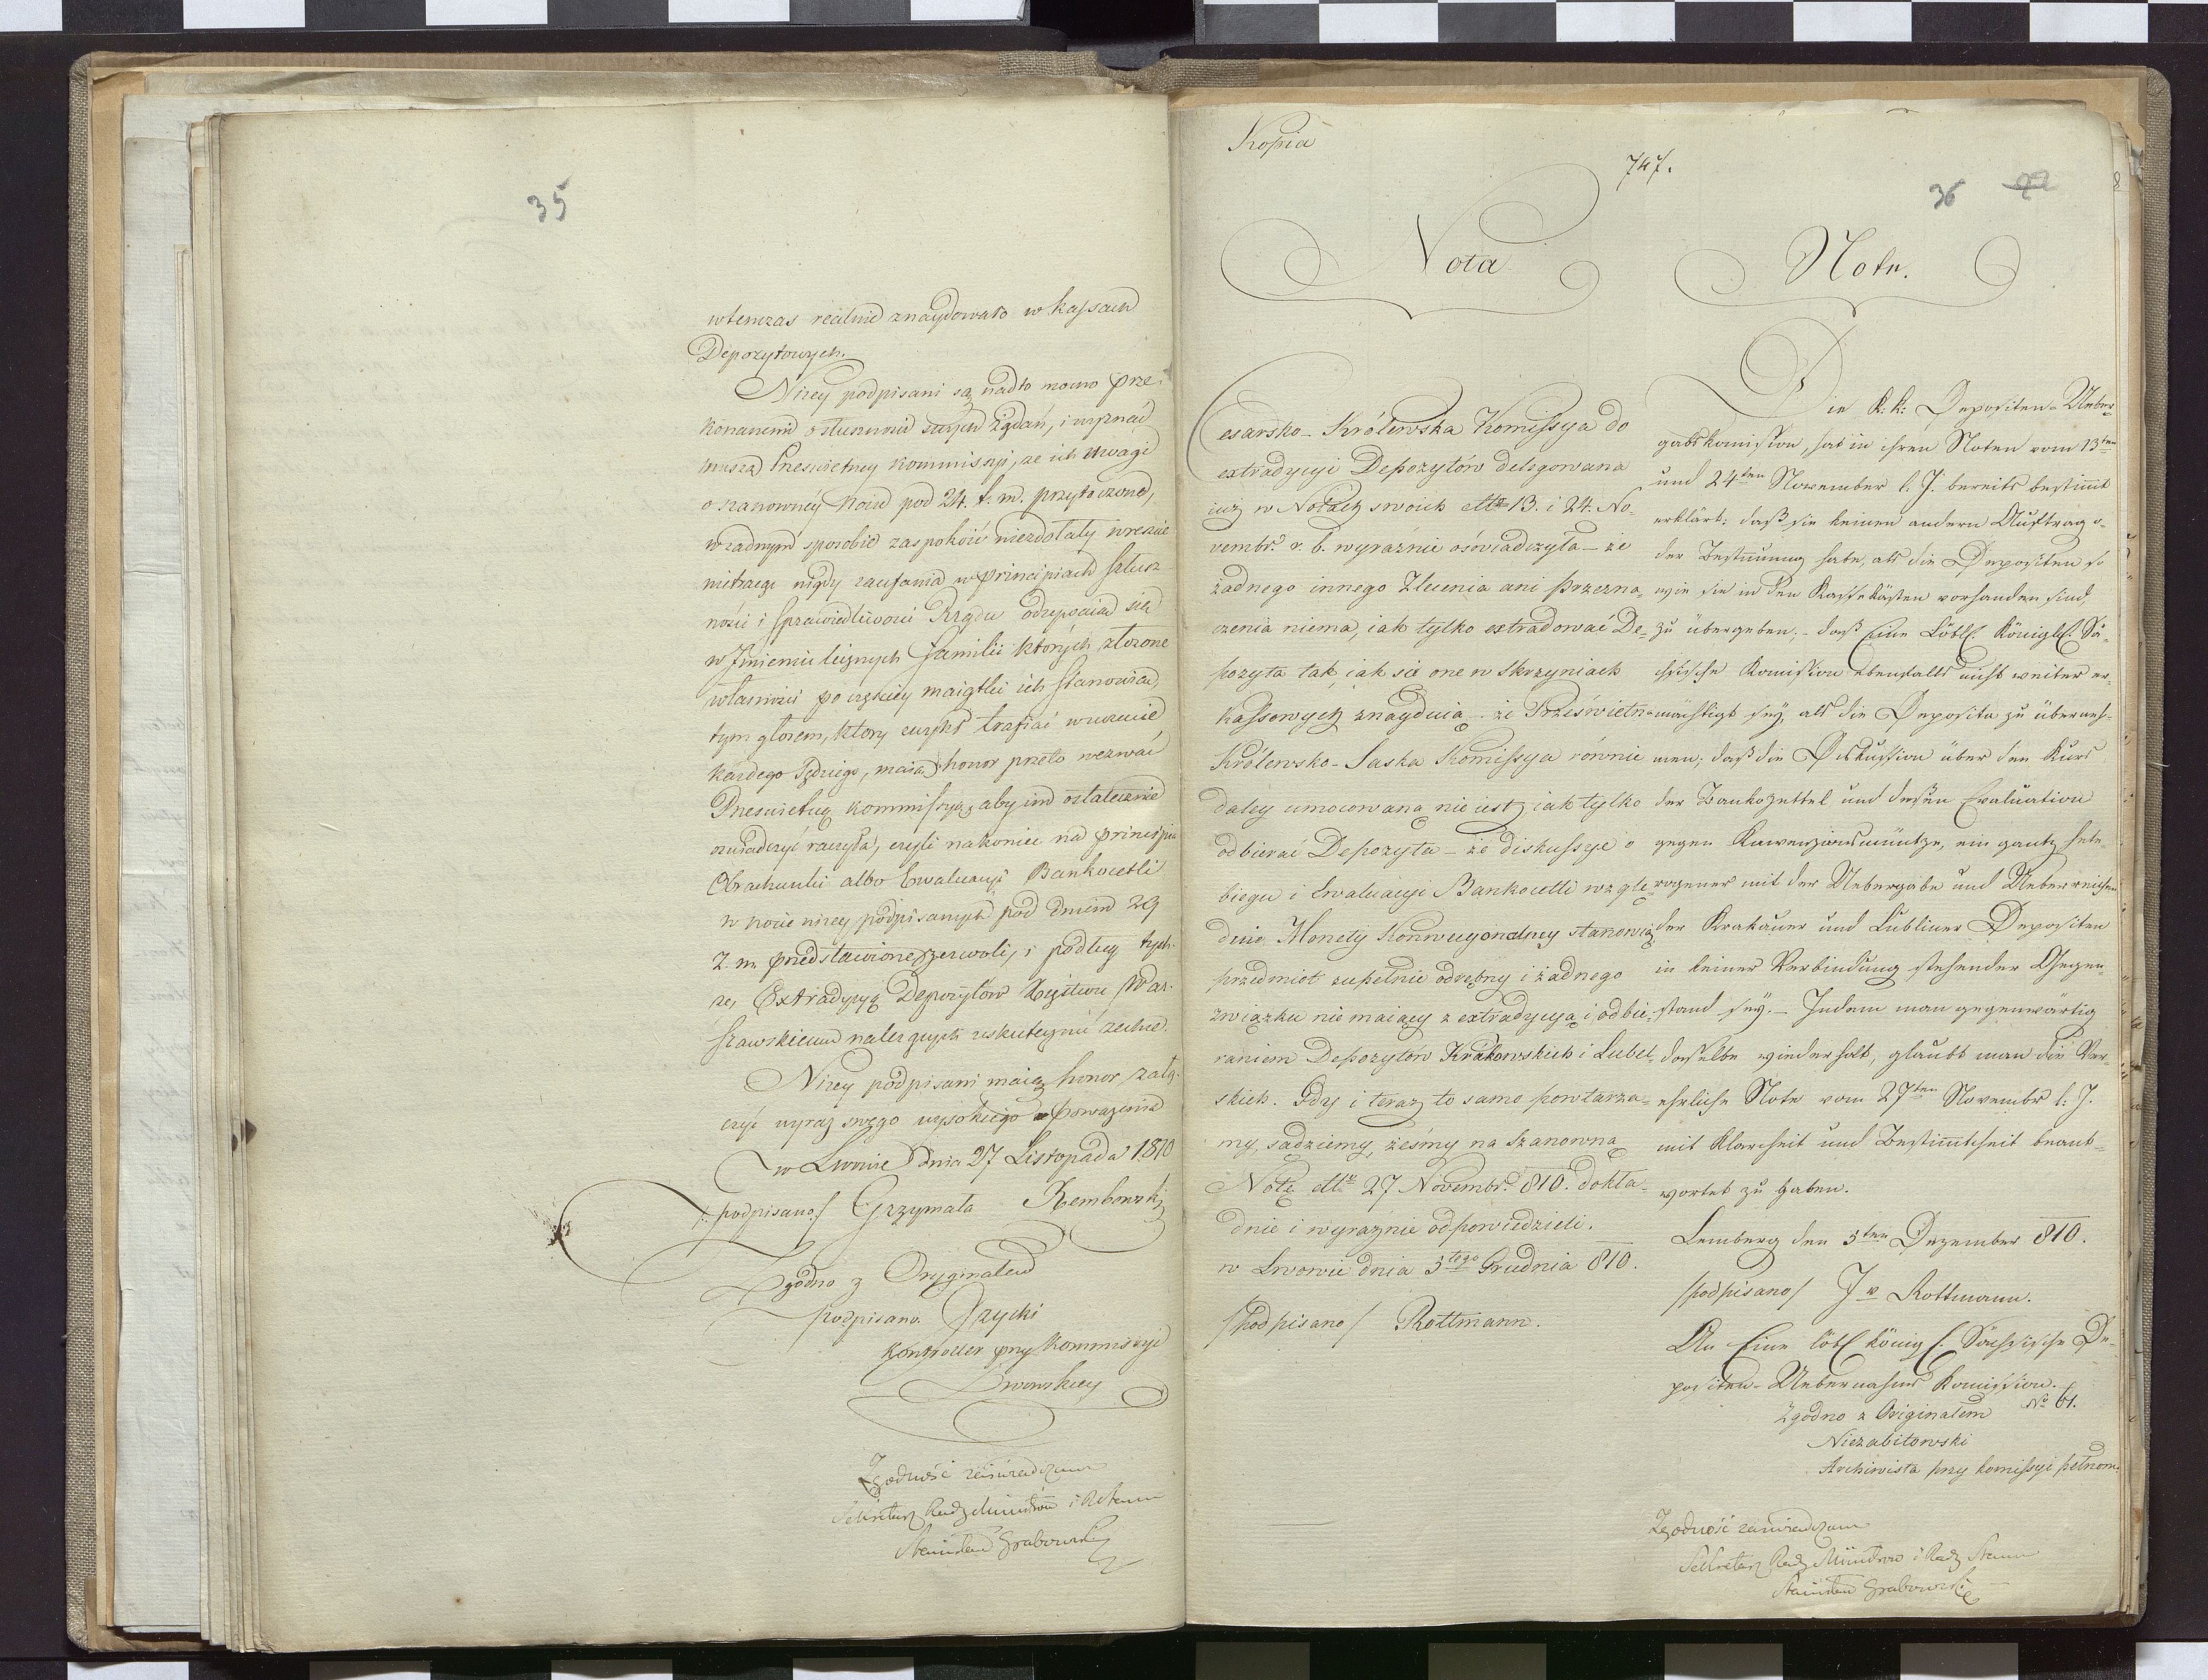 35
wtenczas realnie znaydowało w kassach
Depozytowych.
Niżey podpisani są nadto mocno prze-
konanemi o słuszności swych żądań, i wyznać
muszą Prześwietney Kommissyi, że ich uwagi
o szanowney Nocie pod 24. t. m. przytoczone,
w żadnym sposobie zaspokoić niezdołały wreszcie
nietracąc nigdy zaufania w principiach słusz-
ności i sprawiedliwości Rządu odzywaiąc się
w Imieniu licznych familii których złożone
własności po częściey maiątki ich stanowią,
tym głosem, który zwykł trafiać w uczucie
każdego Sędziego, maią honor przeto wezwać
Prześwietną Kommissyą, aby im ostatecznie
oświadczyć raczyła, czyli nakoniec na principia
Obrachunku albo Ewaluacyi Bankocetli
w nocie niżey podpisanych pod dniem 29
z. m. przedstawione zezwoli, i podług tych-
że, Extradycyą Depozytów Xięstwu War-
szawskiemu należących uskutecznić zechce.
Niżey podpisani maią honor załą-
czyć wyraz swego wysokiego poważania
w Lwowie Dnia 27 Listopada 1810
/: podpisano:/ Grzymała Rembowski
Zgodno z Oryginałem
podpisano. Jzycki
Kontroller przy Kommissyi
Lwowskiey
Zgodność zaświadczam
Sekretarz Rady Ministrów i R Stanu
Stanisław Grabowski
Kopia
747.
36
Nota
Cesarsko-Królewska Komissya do
extradycyi Depozytów delegowana
iuż w Notach swoich dtto 13. i 24. No-
vembr. r. b. wyraźnie oświadczyła – że
żadnego innego Zlecenia ani przezna-
czenia niema, iak tylko extradować De-
pozyta tak, iak się one w skrzyniach
kassowych znayduią – że Prześwietna
Królewsko-Saska Komissya równie
daley umocowana nie iest, iak tylko
odbierać Depozyta – że diskussye o
biegu i Ewaluacyi Bankocetli wzglę-
dnie Monety Konwencyonalney stanowią
przedmiot zupełnie odrębny i żadnego
związku nie maiący z extradycyą i odbie-
raniem Depozytów Krakowskich i Lubel-
skich. Gdy i teraz to samo powtarza-
my, sądziemy, żeśmy na Szanowną
Notę dtto 27 Novembr. 810. dokła-
dnie i wyraźnie odpowiedzieli.
w Lwowie dnia 3tego Grudnia 810.
/podpisano/ Rottmann.
Note.
Die K: K: Depositen-Ueber-
gabskomission, hat in ihren Noten vom 13ten
und 24ten November l. J. bereits bestimt
erklärt: daß sie keinen andern Auftrag o-
der Bestimung habe, als die Depositen so
wie sie in den Kassekästen vorhanden sind
zu übergeben; – daß Eine Löbl. Königl. Sä-
chsische Komission ebenfalls nicht weiter er-
mächtigt sey, als die Deposita zu überneh-
men; daß die Diskussion über den Kurs
der Bankozettel und deßen Evaluation
gegen Konvenzionsmüntze, ein gantz hete-
rogener mit der Uebergabe und Ueberreichen
der Krakauer und Lubliner Depositen
in keiner Verbindung stehender Gegen-
stand sey. – Indem man gegenwärtig
dasselbe wiederholt, glaubt man die Ver-
ehrliche Note vom 27ten Novembr l: J.
mit Klarheit und Bestimtheit beant-
wortet zu haben.
Lemberg den 3ten Dezember 810.
/podpisano/ J v Rottmann.
An Eine löbl königl. Sächsische De-
positen-Uebernahms Komission.
No 61.
Zgodno z Originałem
Niezabitowski
Archiwista przy komissyi pełnom.
Zgodność zaświadczam
Sekretarz Rady Ministrów i Rady Stanu
Stanisław Grabowski